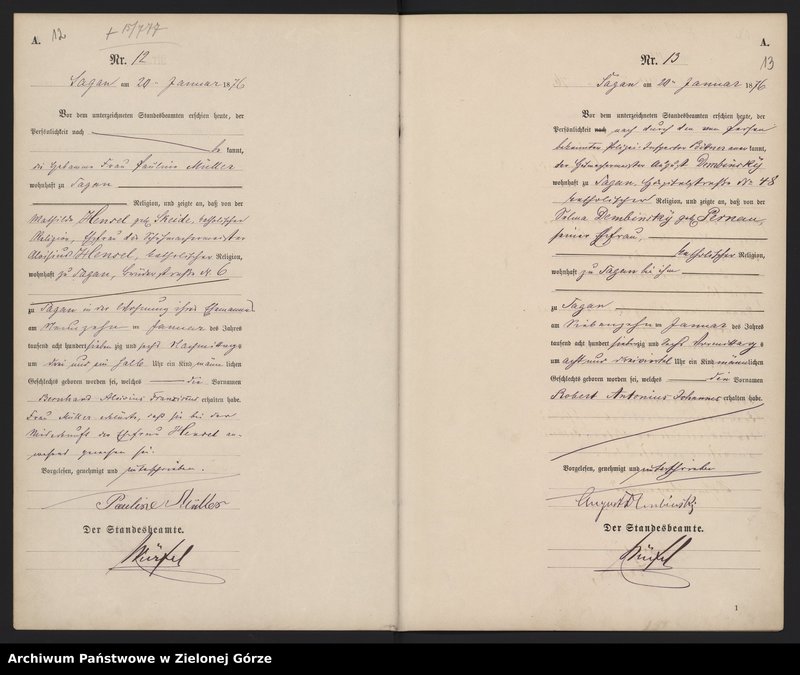 A. 12
+ 15/777
Nr. 12
Sagan am 20ten Januar 1876
Vor dem unterzeichneten Standesbeamten erschien heute, der
Persönlichkeit nach
be kannt,
die Hebamme Frau Pauline Müller
wohnhaft zu Sagan
Religion, und zeigte an, daß von der
Mathilde Hensel geb. katholischer
Religion, Ehefrau des Schuhmachermeister
Aloisius Hensel, katholischer Religion,
wohnhaft zu Sagan, Brüderstraße № 6
zu Sagan in der Wohnung ihres Ehemannes
am Neunzehn ten Januar des Jahres
tausend acht hundert sieben zig und sechs Nachmittags
um drei und ein halb Uhr ein Kind männ lichen
Geschlechts geboren worden sei, welches die Vornamen
Bernhard Aloisius Franziskus erhalten habe.
Frau Müller erklärte, daß sie bei der
Niederkunft der Ehefrau Hensel an-
wesend gewesen sei.
Vorgelesen, genehmigt und unterschrieben.
Pauline Müller
Der Standesbeamte.
Würfel
A.
13
Nr. 13
Sagan am 20ten Januar 1876
Vor dem unterzeichneten Standesbeamten erschien heute, der
Persönlichkeit nach durch den von Person
bekannten Polizei aner kannt,
der August Dembinsky
wohnhaft zu Sagan, № 48
katholischer Religion, und zeigte an, daß von der
Selma Dembinsky geb. Pernau,
seiner Ehefrau,
katholischer Religion,
wohnhaft zu Sagan bei ihm
zu Sagan
am Siebenzehn ten Januar des Jahres
tausend acht hundert siebenzig und sechs Vormittags
um acht und dreiviertel Uhr ein Kind männlichen
Geschlechts geboren worden sei, welches den Vornamen
Robert Antonius Johannes erhalten habe.
Vorgelesen, genehmigt und unterschrieben
August Dembinski
Der Standesbeamte.
Würfel
1
Archiwum Państwowe w Zielonej Górze